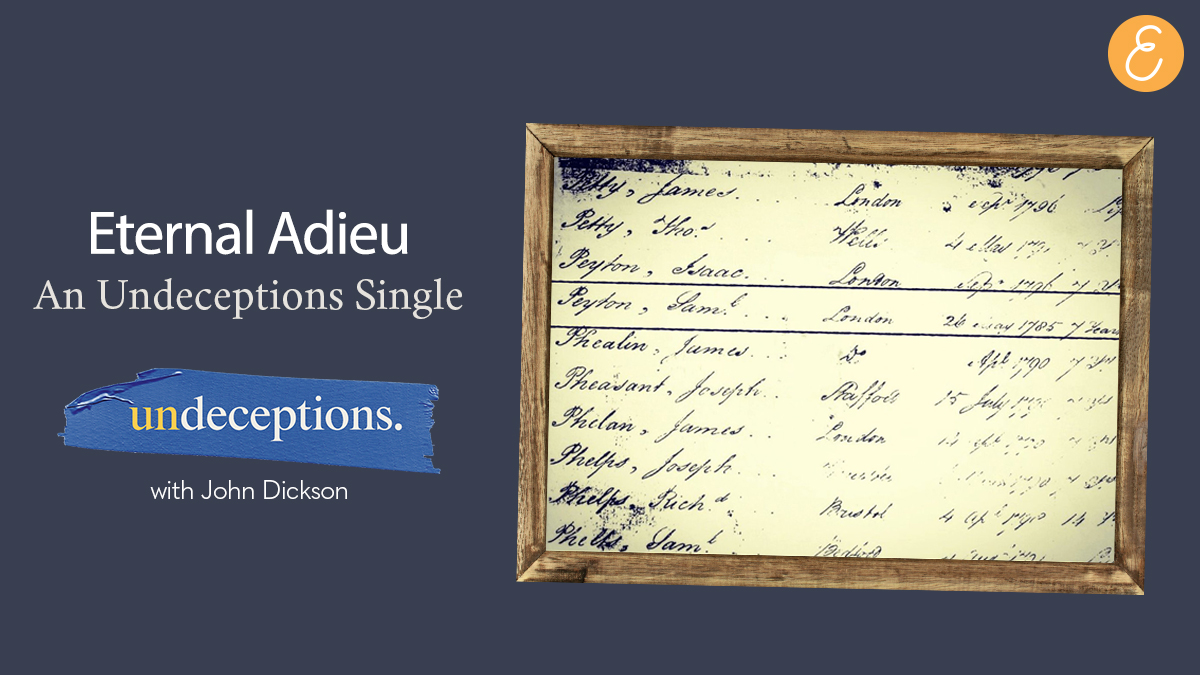 E
Eternal Adieu
An Undeceptions Single
undeceptions.
with John Dickson
Petty, James. London 1796
Petty, Tho.s Wells 4
Peyton, Isaac. London 7
Peyton, Sam.l London 26 May 1785 7 Years
Phealin, James. Do Apl 1790 7 Yrs
Pheasant, Joseph. Stafford 15 July
Phelan, James. London
Phelps, Joseph.
Phelps, Rich.d Bristol 4 14
Phelps, Sam.l Bedford